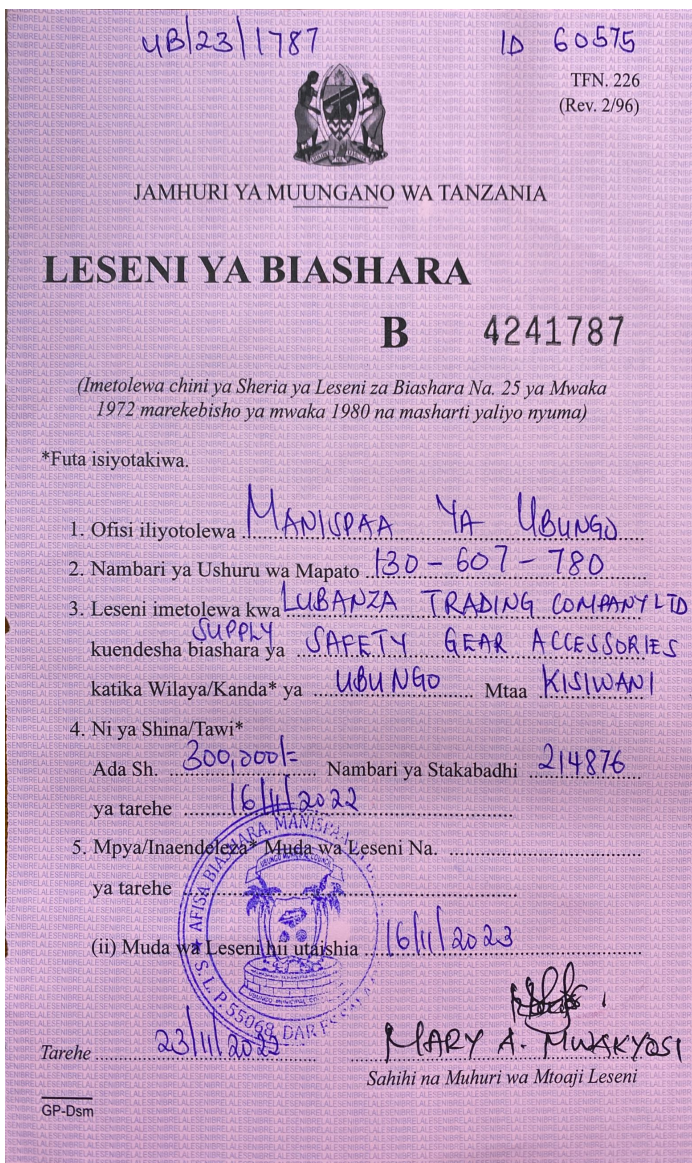 UB/23/1787 ID 60575
TFN. 226
(Rev. 2/96)
JAMHURI YA MUUNGANO WA TANZANIA
LESENI YA BIASHARA
B 4241787
(Imetolewa chini ya Sheria ya Leseni za Biashara Na. 25 ya Mwaka
1972 marekebisho ya mwaka 1980 na masharti yaliyo nyuma)
*Futa isiyotakiwa.
1. Ofisi iliyotolewa MANISPAA YA UBUNGO
2. Nambari ya Ushuru wa Mapato 130-607-780
3. Leseni imetolewa kwa LUBANZA TRADING COMPANY LTD
kuendesha biashara ya SUPPLY SAFETY GEAR ACCESSORIES
katika Wilaya/Kanda* ya UBUNGO Mtaa KISIWANI
4. Ni ya Shina/Tawi*
Ada Sh. 300,000/= Nambari ya Stakabadhi 214876
ya tarehe 16/11/2022
5. Mpya/Inaendeleza* Muda wa Leseni Na.
ya tarehe
(ii) Muda wa Leseni hii utaishia 16/11/2023
AFISA BIASHARA, MANISPAA
UBUNGO MUNICIPAL COUNCIL
S. L. P. 55068, DAR ES SALAAM
Tarehe 23/11/2022 MARY A. MWAKYOSI
Sahihi na Muhuri wa Mtoaji Leseni
GP-Dsm